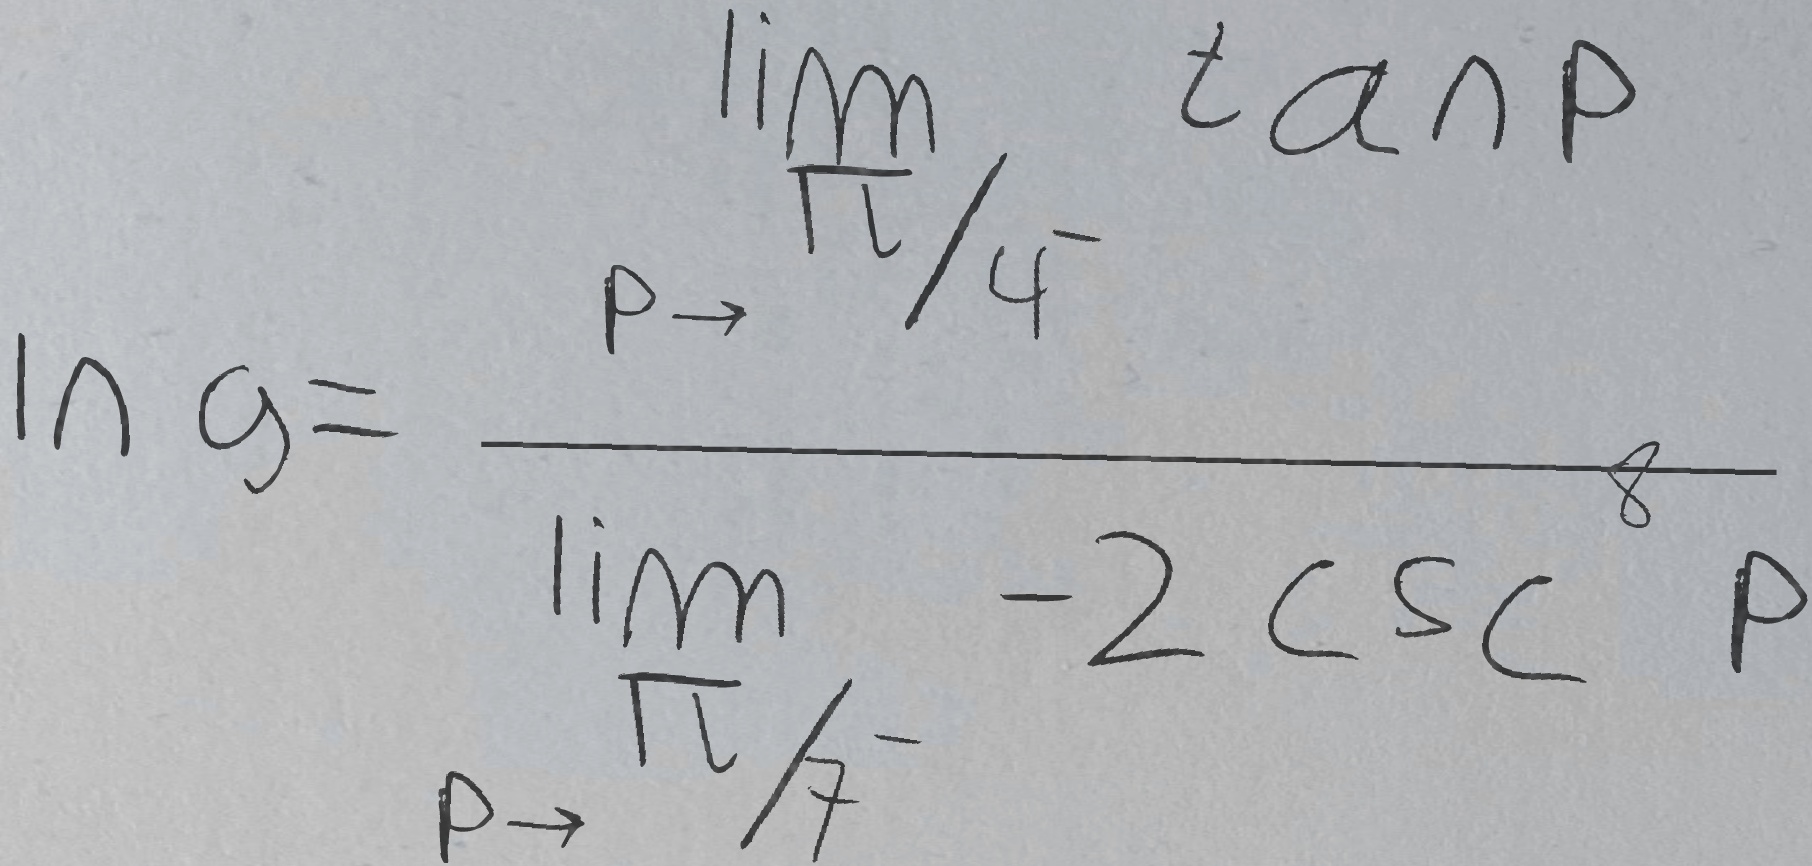 \ln g = \frac{\lim_{p \to \pi/4^-} \tan p}{\lim_{p \to \pi/7^-} -2 \csc^8 p}